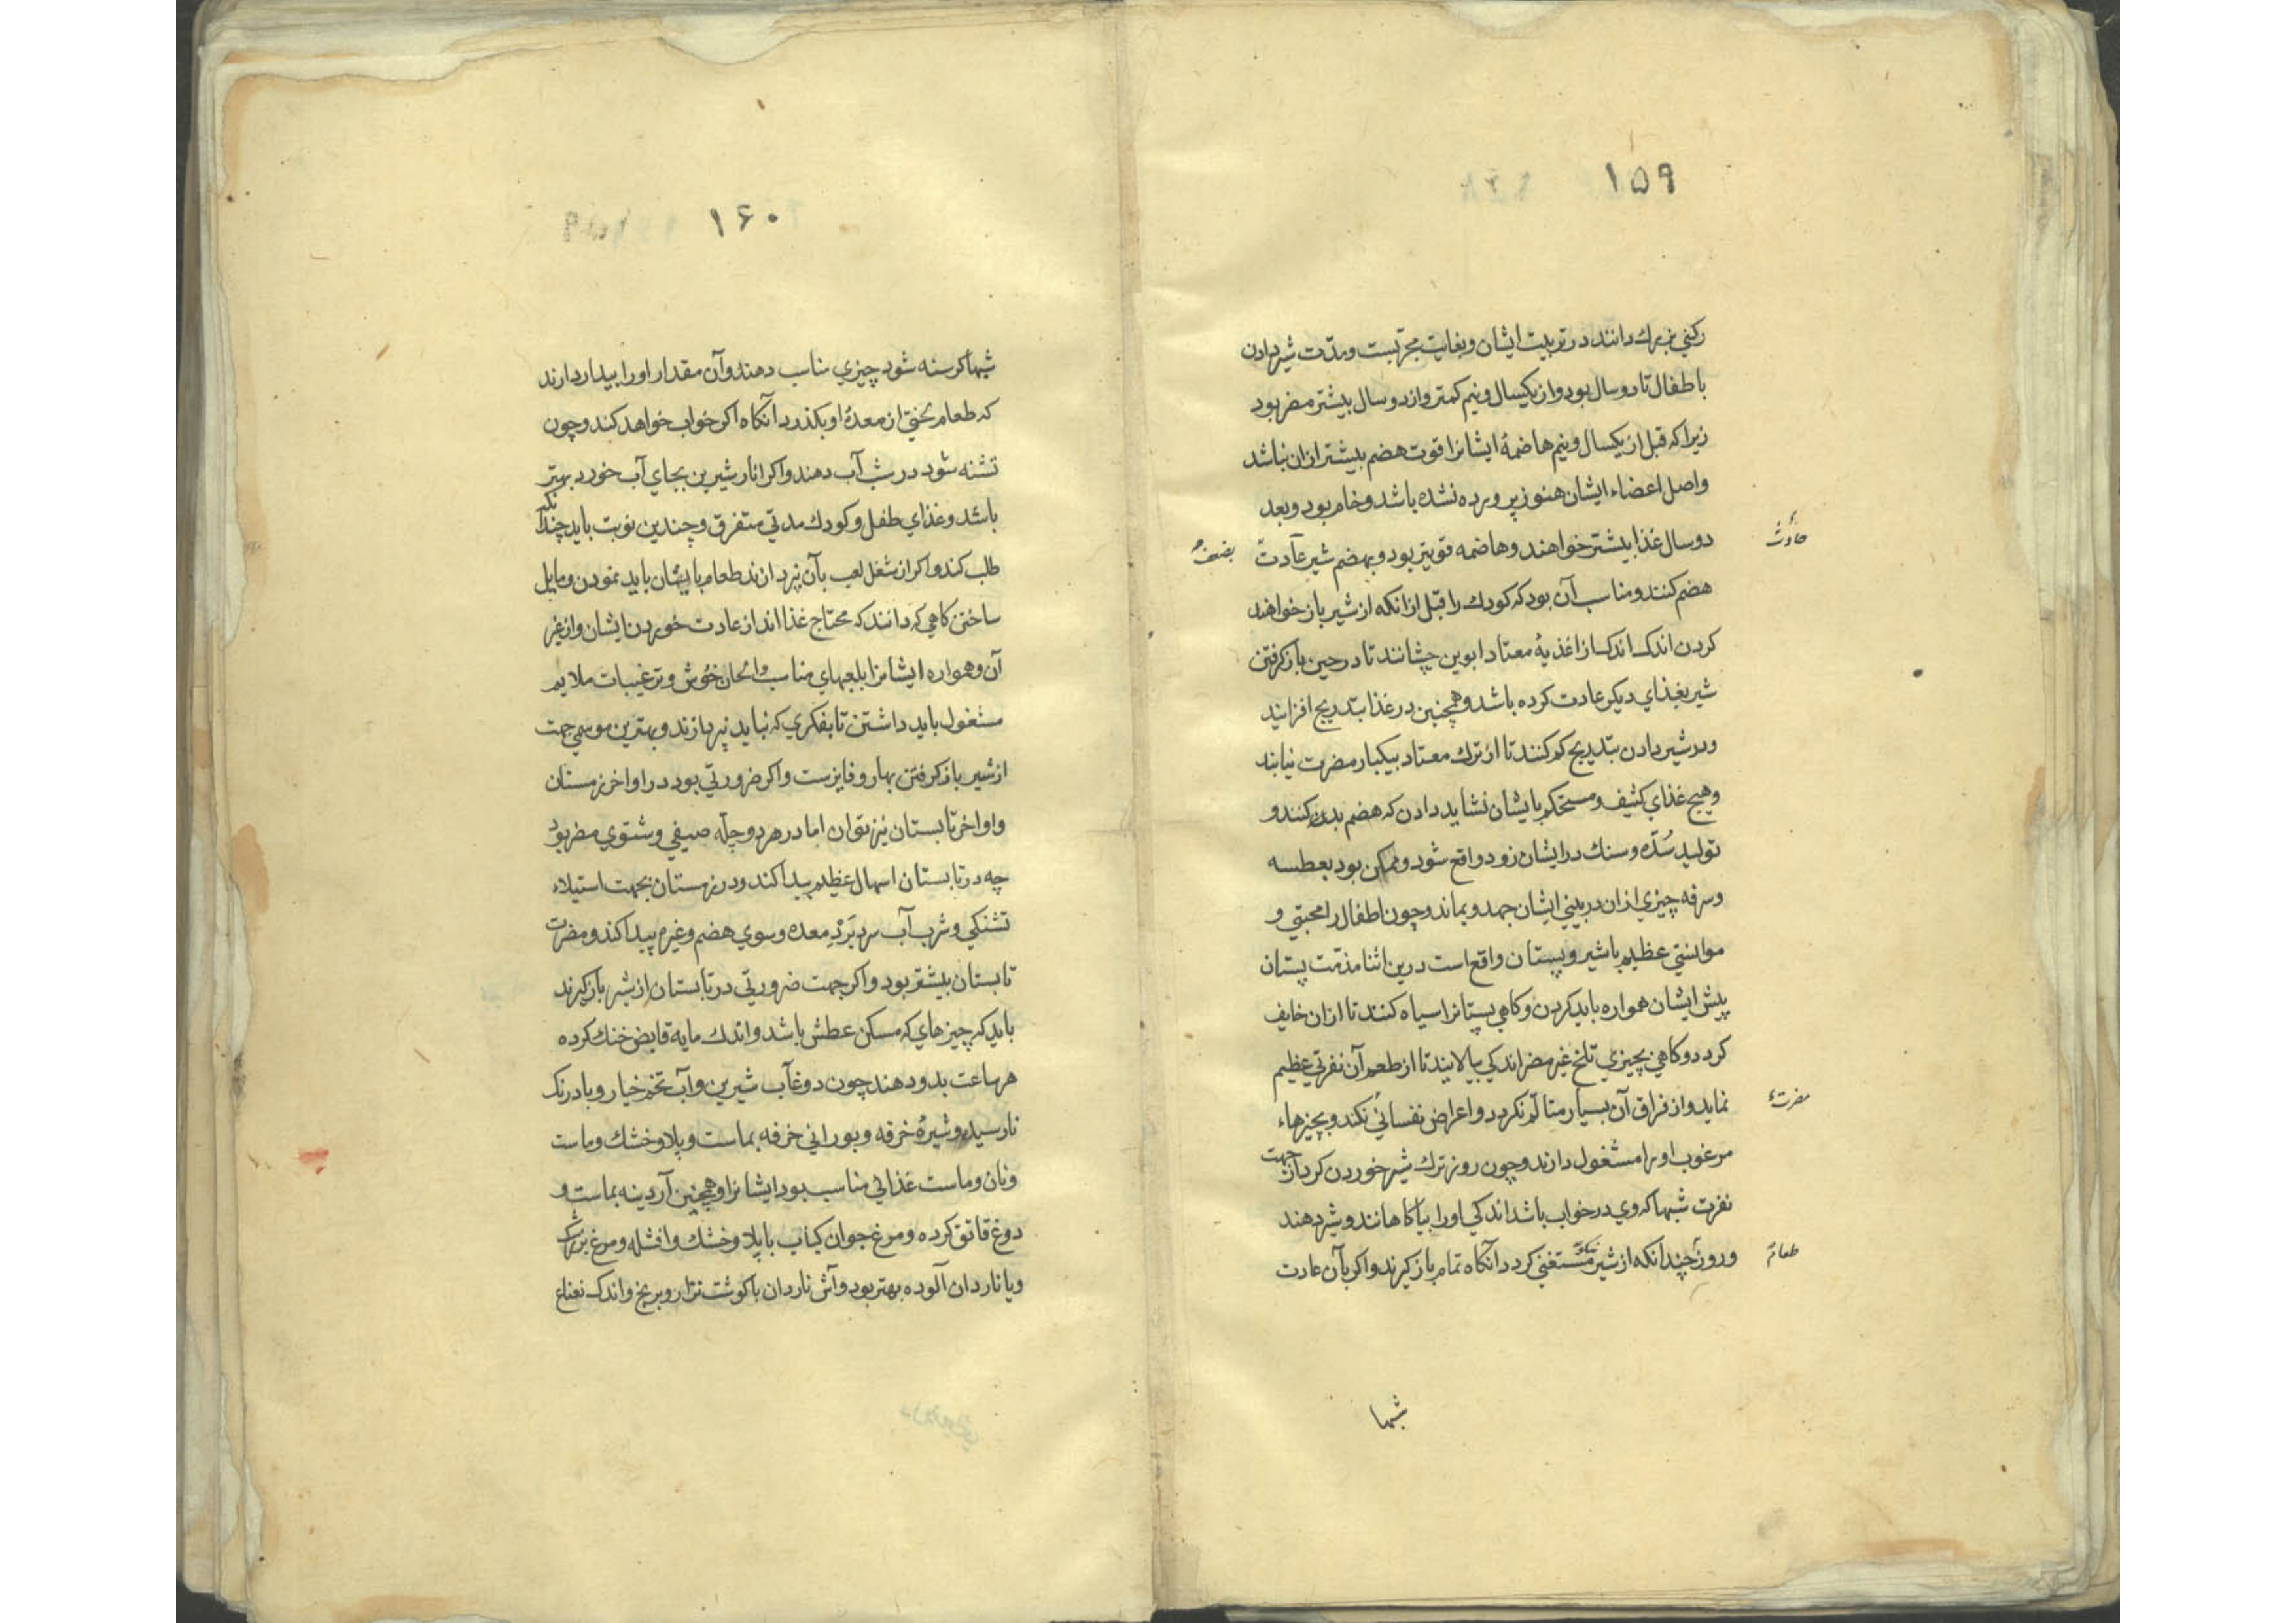 ۱۵۹
رکنی بزرك دانند در تربیت ایشان و بغایت مجربست و مدّت شیر دادن
باطفال تا دو سال بود و از یکسال و نیم کمتر و از دو سال بیشتر مضر بود
زیرا که قبل از یکسال و نیم هاضمهٔ ایشانرا قوت هضم بیشتر ازان نباشد
و اصل اعضاء ایشان هنوز پرورده نشده باشد و خام بود و بعد
دو سال غذا بیشتر خواهند و هاضمه قویتر بود و بهضم شیر عادت
هضم کنند و مناسب آن بود که کودك را قبل ازانکه از شیر باز خواهند
کردن اندك اندك از اغذیهٔ معتاد ابوین چشانند تا در حین باز کرفتن
شیر بغذای دیکر عادت کرده باشد و همچنین در غذا بتدریج افزایند
و در شیر دادن بتدریج کم کنند تا از ترك معتاد بیکبار مضرت نیابند
و هیچ غذای کثیف و مستحکم بایشان نشاید دادن که هضم بدن کنند و
تولید سُدّه و سنك در ایشان زود واقع شود و ممکن بود بعطسه
و سرفه چیزی ازان در بینی ایشان جهد و بماند و چون اطفال را محبتی و
موانستی عظیم با شیر و پستان واقع است درین اثنا مذمت پستان
پیش ایشان همواره باید کردن و کاهی پستانرا سیاه کنند تا ازان خایف
کردد و کاهی بچیزی تلخ غیر مضر اندکی بیالایند تا از طعم آن نفرتی عظیم
نماید و از فراق آن بسیار متألّم نکردد و اعراض نفسانی نکند و بچیزهاء
مرغوب او را مشغول دارند و چون روز ترك شیر خوردن کرد از جهت
نفرت شبها که وی در خواب باشد اندکی او را بیاکاهانند و شیر دهند
و روز چندانکه از شیر مستغنی کردد آنکاه تمام باز کیرند و اکر بآن عادت
شبها
۱۶۰
شبها کرسنه شود چیزی مناسب دهند و آن مقدار او را بیدار دارند
که طعام بختی از معدهٔ او بکذرد آنکاه اکر خواب خواهد کند و چون
تشنه شود در شب آب دهند و اکر انار شیرین بجای آب خورد بهتر
باشد و غذای طفل و کودك مدتی متفرق و چندین نوبت باید چندانکه
طلب کند و اکر از شغل لعب بآن نپردازند طعام بایشان باید نمودن و مایل
ساختن کاهی که دانند که محتاج غذا اند از عادت خوردن ایشان و از غیر
آن و همواره ایشانرا بلعبهای مناسب و الحان خوش و ترغیبات ملایم
مشغول باید داشتن تا بفکری که نباید نپردازند و بهترین موسمی جهت
از شیر باز کرفتن بهار و فایزست و اکر ضرورتی بود در اواخر زمستان
و اواخر تابستان نیز توان اما در هر دو چلّه صیفی و شتوی مضر بود
چه در تابستان اسهال عظیم پیدا کند و در زمستان بجهت استیلاء
تشنکی و شرب آب سرد بَرْدِ معده و سوی هضم و غیره پیدا کند و مضرت
تابستان بیشتر بود و اکر بجهت ضرورتی در تابستان از شیر باز کیرند
باید که چیزهای که مسکن عطش باشد و اندك مایه قابض خنك کرده
هر ساعت بدو دهند چون دوغاب شیرین و آب تخم خیار و بادرنك
نارسیده و شیرهٔ خرفه و بورانی خرفه بماست و پلاو خشك و ماست
و نان و ماست غذائی مناسب بود ایشانرا و همچنین آردینه بماست و
دوغ قاتق کرده و مرغ جوان کباب با پلاو خشك و افشله و مرغ بزرشك
و یا ناردان آلوده بهتر بود و آش ناردان با کوشت نزار و برنج و اندك نعناع